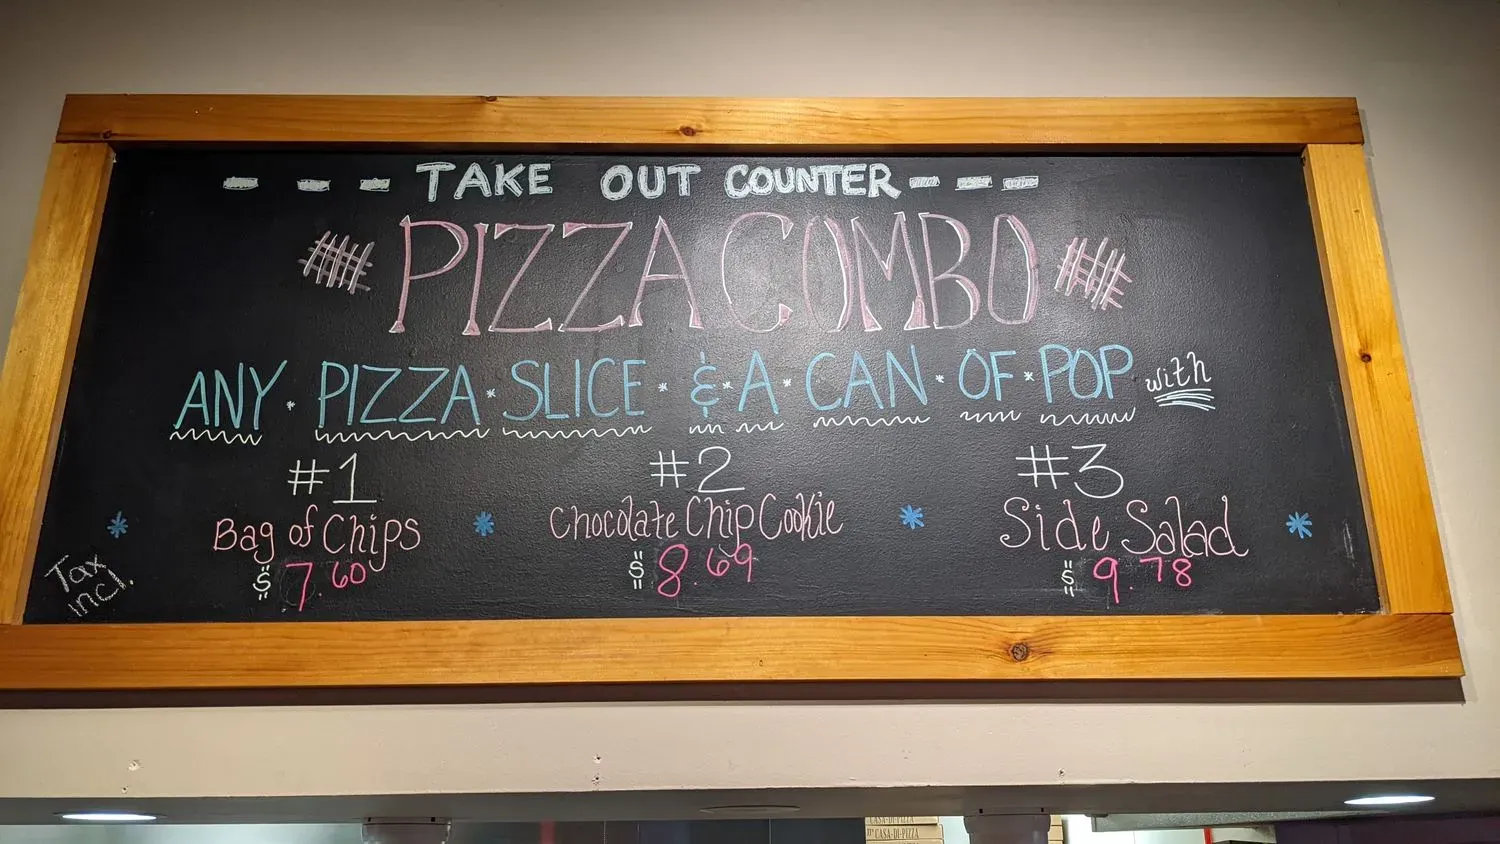 TAKE OUT COUNTER
PIZZA COMBO
ANY · PIZZA * SLICE * & * A * CAN * OF * POP with
#1
Bag of Chips
$ 7.60
#2
Chocolate Chip Cookie
$ 8.69
#3
Side Salad
$ 9.78
Tax
incl.
CASA-DI-PIZZA
CASA-DI-PIZZA